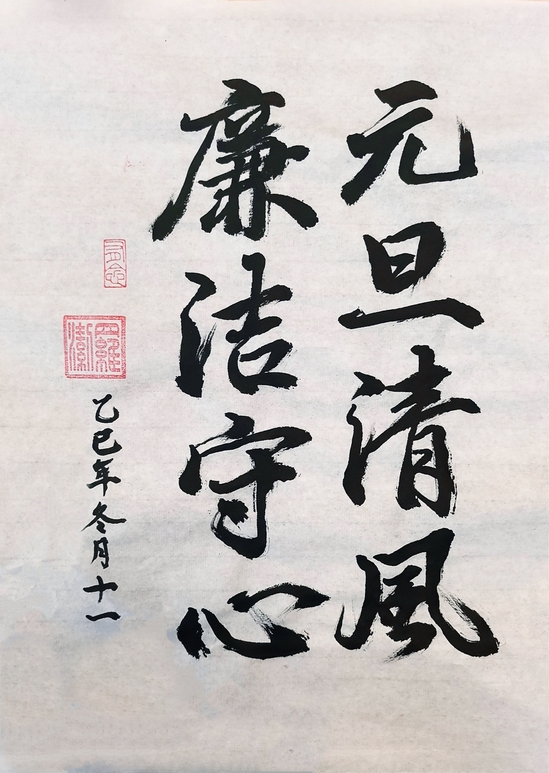 元旦清風
廉洁守心
乙巳年冬月十一